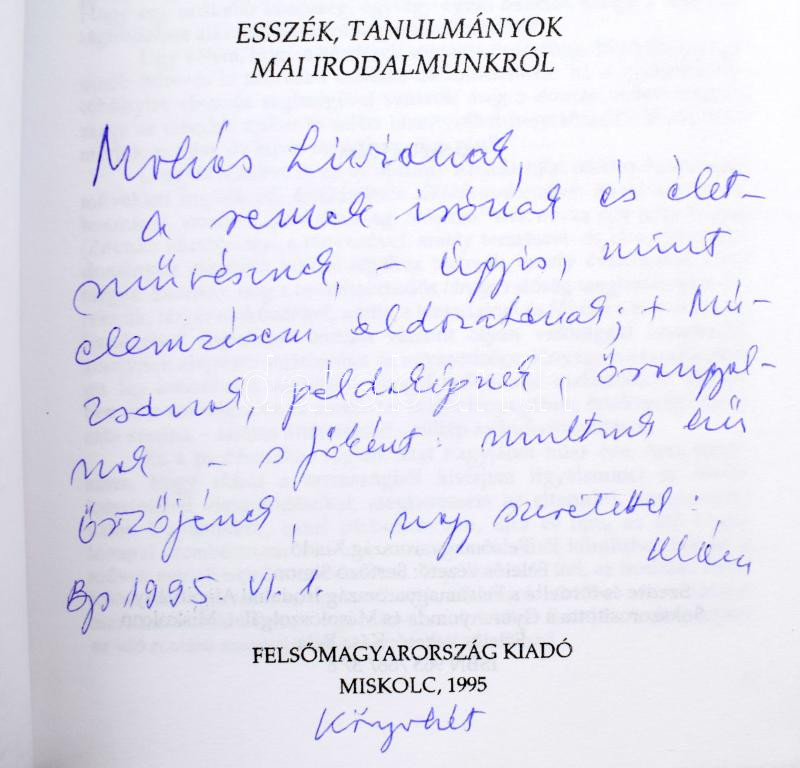 ESSZÉK, TANULMÁNYOK
MAI IRODALMUNKRÓL
Moliás Liviának,
a remek írónak és élet-
művésznek, – úgyis, mint
elemzésem áldozatának; +
példaképnek, őrangyal-
nak – s főként: multunk hű
őrzőjének, nagy szeretettel:
Bp, 1995. VI. 1.
FELSŐMAGYARORSZÁG KIADÓ
MISKOLC, 1995
Könyvhét